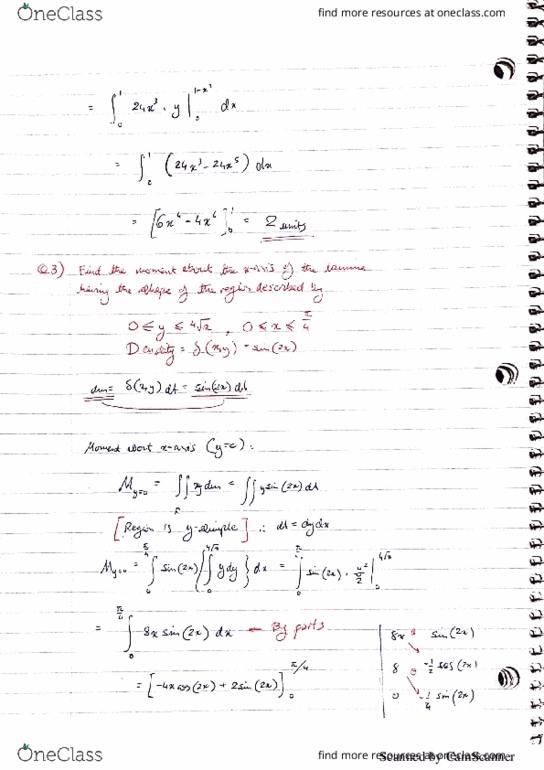 OneClass
find more resources at oneclass.com
= ∫₀¹ 24x³ · y |₀^{1-x²} dx
= ∫₀¹ (24x³ - 24x⁵) dx
= [6x⁴ - 4x⁶]₀¹ = 2 units
Q.3) Find the moment about the x-axis of the lamina
having the shape of the region described by
0 ≤ y ≤ 4√x , 0 ≤ x ≤ π/4
Density = δ(x,y) = sin(2x)
dm = δ(x,y) dA = sin(2x) dA
Moment about x-axis (y=0):
M_{y=0} = ∫∫_R y dm = ∫∫ y sin(2x) dA
[Region is y-simple] ∴ dA = dy dx
M_{y=0} = ∫₀^{π/4} sin(2x) {∫₀^{4√x} y dy} dx = ∫₀^{π/4} sin(2x) · y²/2 |₀^{4√x}
= ∫₀^{π/4} 8x sin(2x) dx ← By parts
8x ⊕ sin(2x)
8 ⊖ -1/2 cos(2x)
0 -1/4 sin(2x)
= [-4x cos(2x) + 2 sin(2x)]₀^{π/4}
OneClass
find more resources at oneclass.com
Scanned by CamScanner